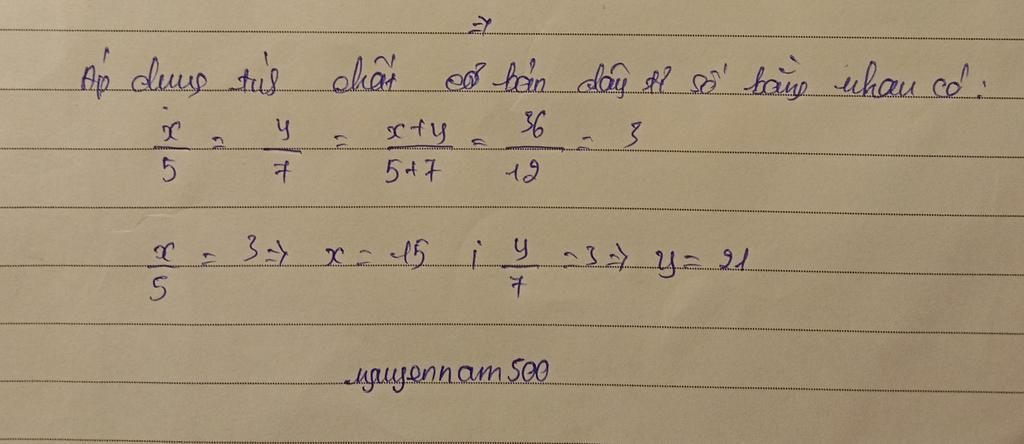 ⇒
Áp dụng t/c chất cơ bản dãy tỉ số bằng nhau có:
x/5 = y/7 = x+y/5+7 = 36/12 = 3
x/5 = 3 ⇒ x = 15 ; y/7 = 3 ⇒ y = 21
nguyennam500